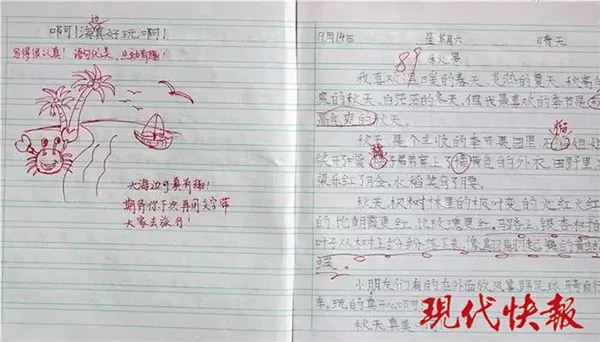 啊!海边真好玩啊!
写得很认真!语句优美,生动有趣!
大海边可真有趣!
期待你下次再用文字带
大家去旅行!
9月14日 星期六 晴天
89
秋景
我喜欢 暖的春天、炎热的夏天、秋高气
爽的秋天、白茫茫的冬天,但我最喜欢的季节是
高气爽的秋天。
秋天,是个丰收的季节,果园里
色的外衣,田野里,
粱乐红了脸,水稻笑弯了腰。
秋天,枫树林里的枫叶变的火红火红
的,比朝霞更红,比玫瑰更红。马路上,银杏树的
叶子从树上纷纷落下来,像翩翩起舞的黄
小朋友们有的在外面放风筝、踢足球、骑自行
车,玩的真开心
秋天真美
现代快报